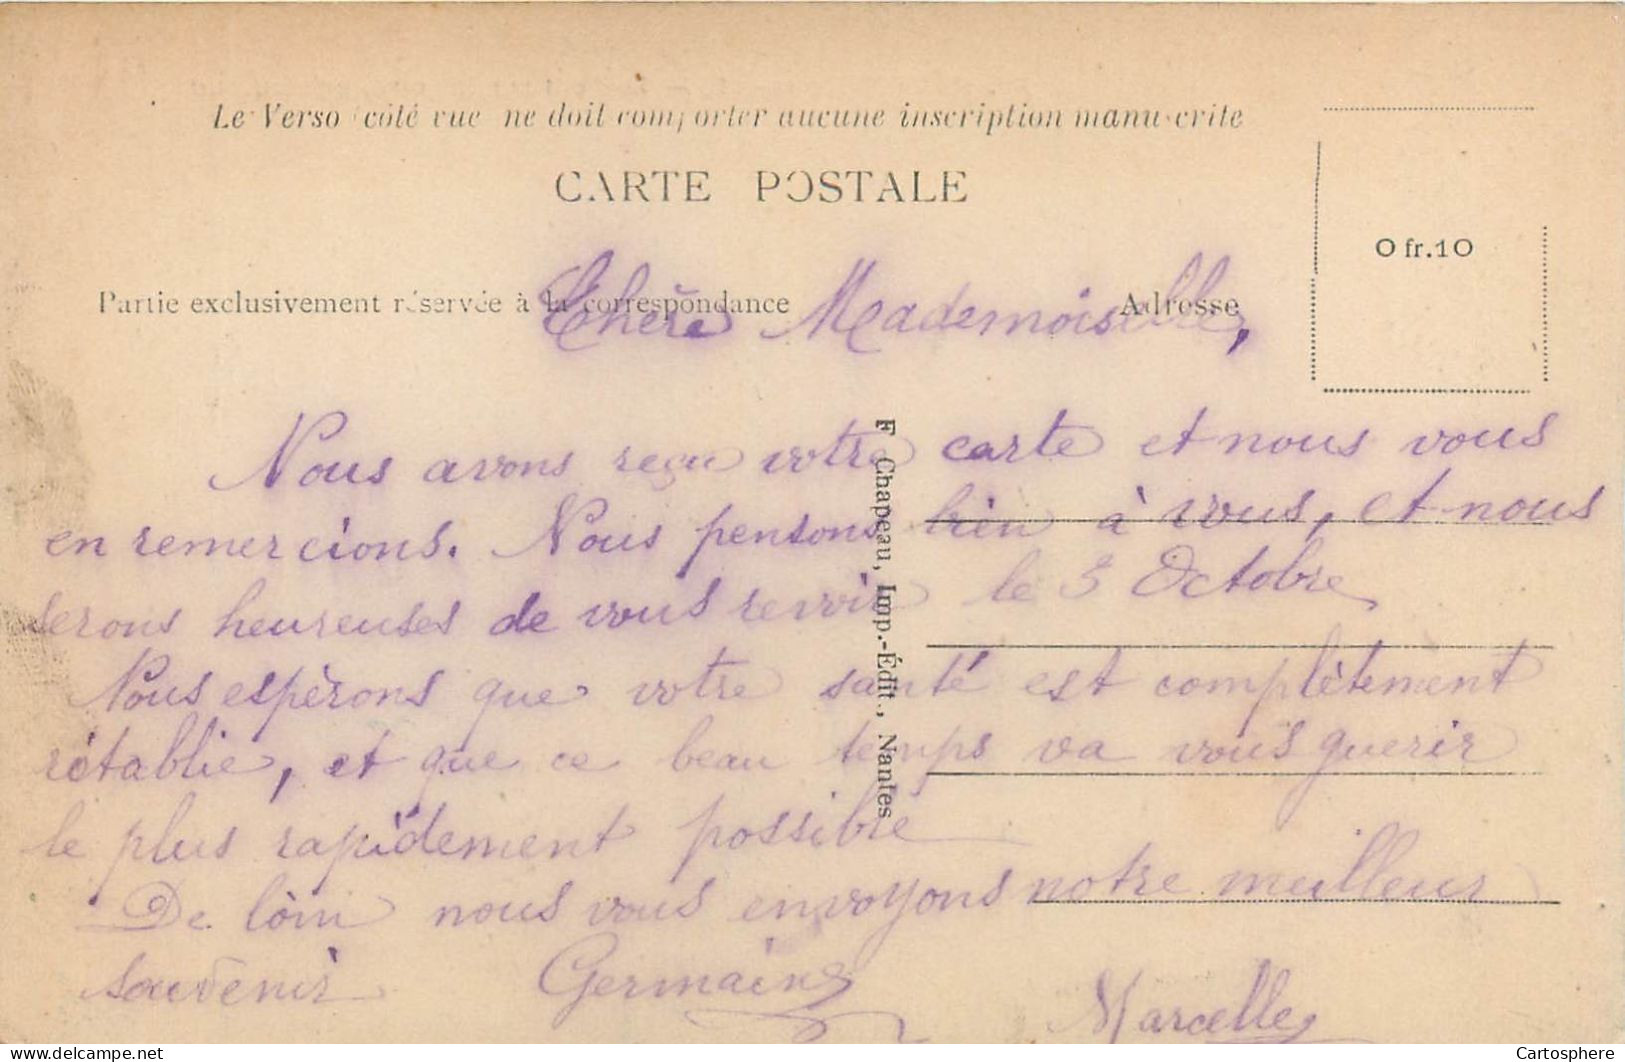 Le Verso (côté vue ne doit comporter aucune inscription manuscrite
CARTE POSTALE
0 fr.10
Partie exclusivement réservée à la correspondance
Adresse
Chère Mademoiselle,
Nous avons reçu votre carte et nous vous
en remercions. Nous pensons bien à vous, et nous
serons heureuses de vous revoir le 3 Octobre
Nous espèrons que votre santé est complètement
rétablie, et que ce beau temps va vous guerir
le plus rapidement possible
De loin nous vous envoyons notre meilleur
souvenir Germaine Marcelle
F Chapeau, Imp.-Édit., Nantes
delcampe.net
Cartosphere